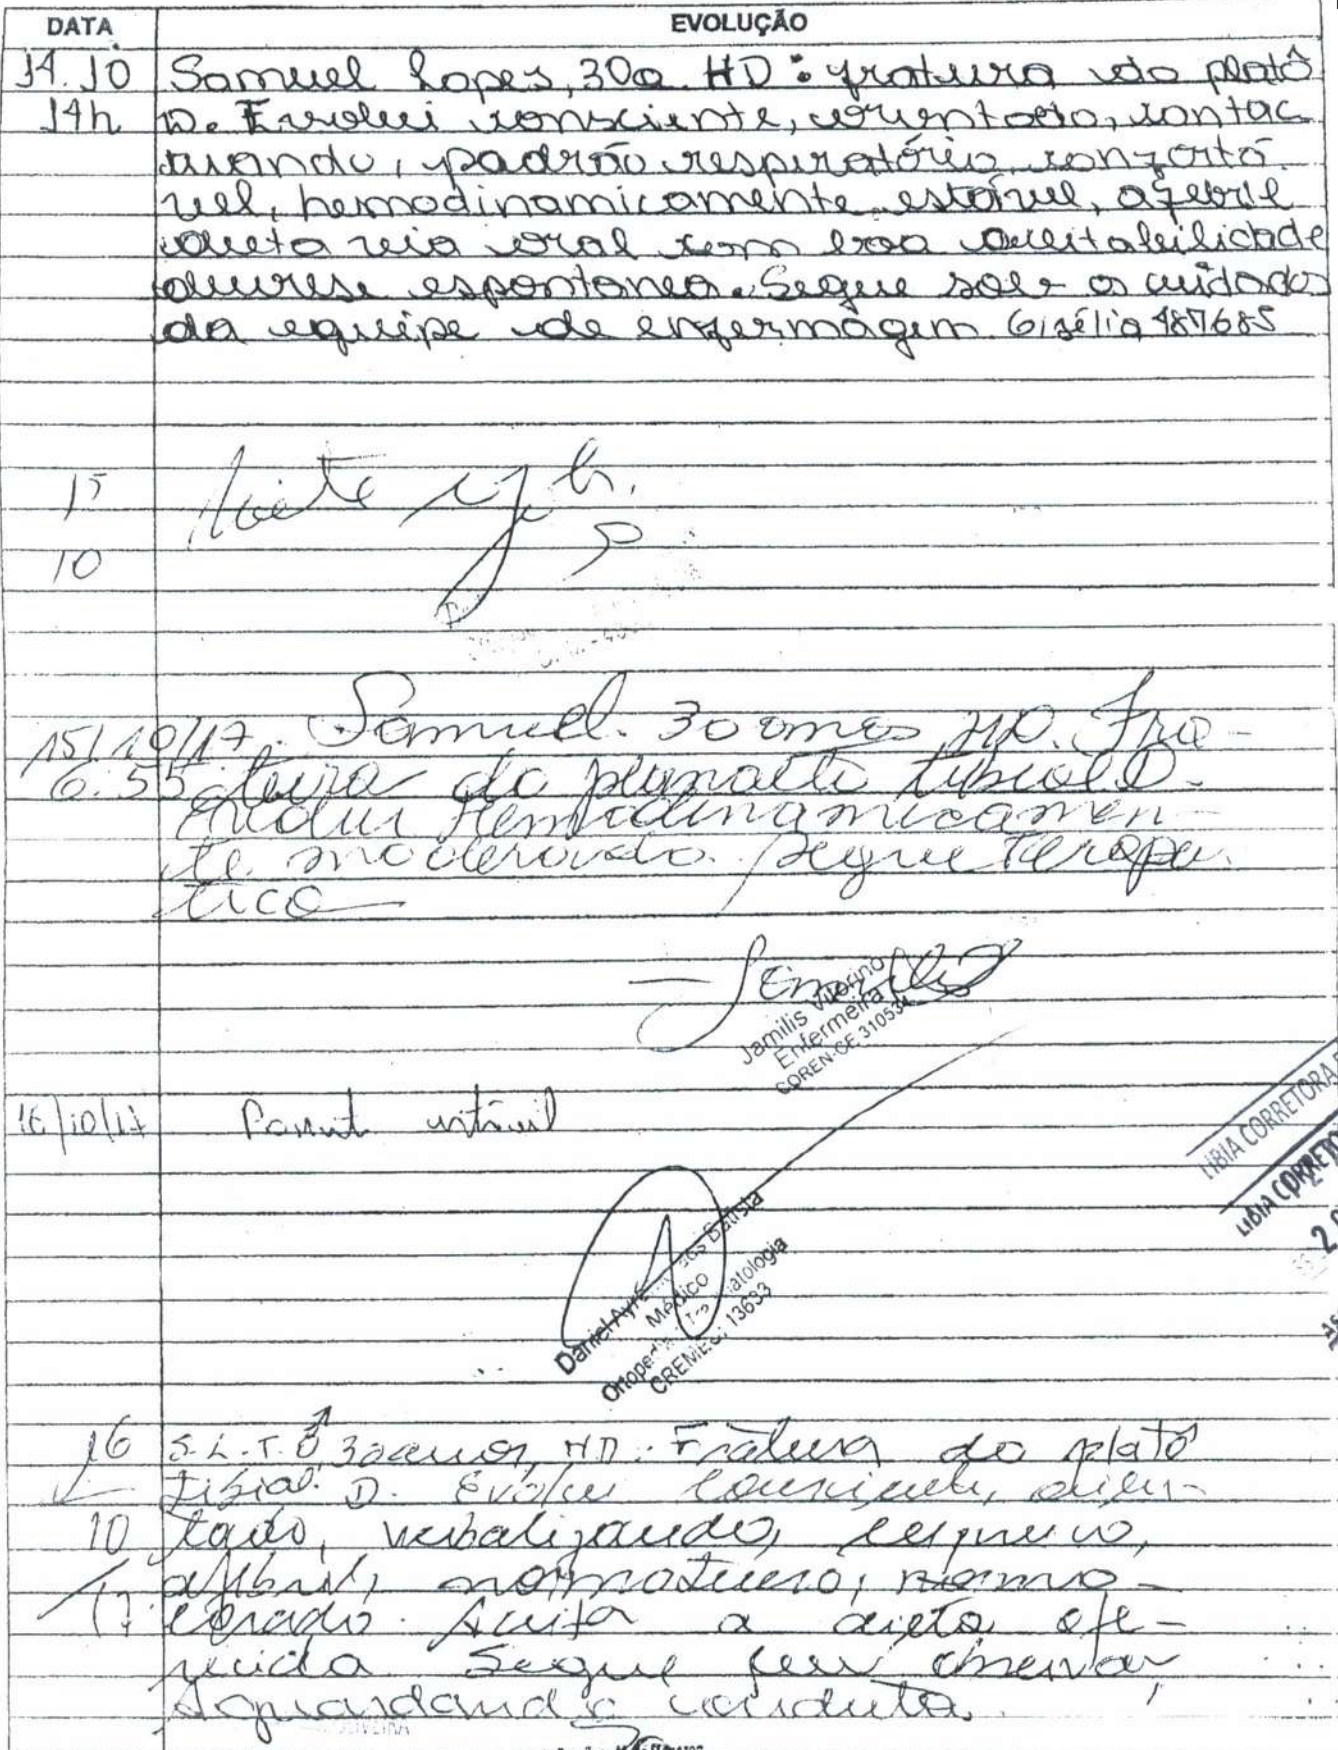 DATA EVOLUÇÃO
14.10 Samuel Lopes, 30a HD: fratura do platô
14h D. Evolui consciente, orientado, contac
tuando, padrão respiratório confortá
vel, hemodinamicamente estável, afebril
dieta via oral com boa aceitabilidade
diurese espontanea. Segue sob os cuidados
da equipe de enfermagem. Gisélia 487685
15
10
15/10/17. Samuel. 30 anos HD. Fra-
6:55 tura do planalto tibial D.
Evolui Hemodinamicamen-
te moderado. Segue Terapeu
tico
Jamilis Vitorino
Enfermeira
COREN-CE 310534
16/10/17 Pacient estável
Daniel Batista
Médico
CREMEC: 13633
16 S.L.T. ♂, 30 anos, HD: Fratura do platô
Tibial D. Evolui consciente, orien-
10 tado, verbalizando, eupneico,
17 afebril, normotenso, normo-
corado. Aceita a dieta ofe-
recida. Segue
Aguardando conduta.
OLIVEIRA
LIBIA CORRETORA
LIBIA CORRETO
2